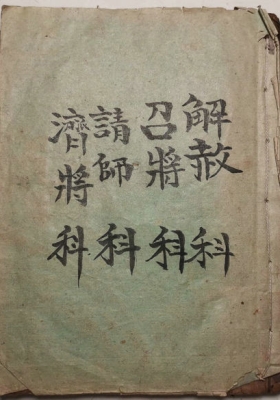 解赦科
召將科
請師科
濟將科